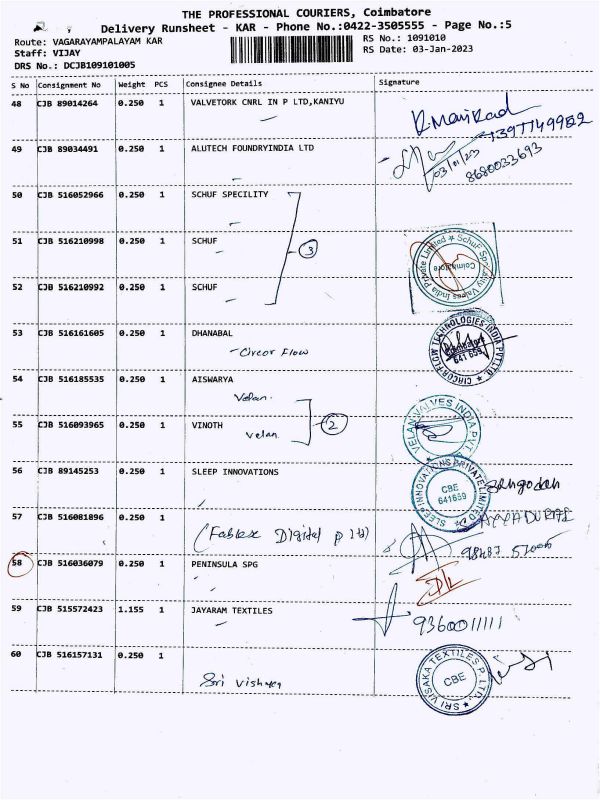 THE PROFESSIONAL COURIERS, Coimbatore
Delivery Runsheet - KAR - Phone No.:0422-3505555 - Page No.:5
Route: VAGARAYAMPALAYAM KAR
RS No.: 1091010
Staff: VIJAY
RS Date: 03-Jan-2023
DRS No.: DCJB109101005
S No Consignment No Weight PCS Consignee Details Signature
48 CJB 89014264 0.250 1 VALVETORK CNRL IN P LTD,KANIYU
49 CJB 89034491 0.250 1 ALUTECH FOUNDRYINDIA LTD
03/01/23
8680033693
50 CJB 516052966 0.250 1 SCHUF SPECILITY
51 CJB 516210998 0.250 1 SCHUF
3
52 CJB 516210992 0.250 1 SCHUF
Coimbatore
53 CJB 516161605 0.250 1 DHANABAL
- Circor Flow
CIRCOR FLOW TECHNOLOGIES INDIA PVT LTD.
641 659
54 CJB 516185535 0.250 1 AISWARYA
Velan.
55 CJB 516093965 0.250 1 VINOTH
Velan.
2
VELAN VALVES INDIA PVT.
56 CJB 89145253 0.250 1 SLEEP INNOVATIONS
SLEEP INNOVATIONS PRIVATE LIMITED
CBE
641659
57 CJB 516081896 0.250 1
(Fabtex Digital p ltd)
58 CJB 516036079 0.250 1 PENINSULA SPG
59 CJB 515572423 1.155 1 JAYARAM TEXTILES
9360011111
60 CJB 516157131 0.250 1
Sri Vishaka
SRI VISAKA TEXTILES P. LTD.
CBE